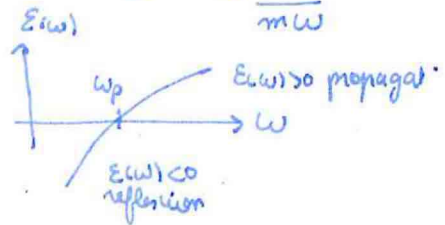 mω
ε(ω)
ε(ω)>0 propagat.
ωp
ω
ε(ω)<0
reflexion